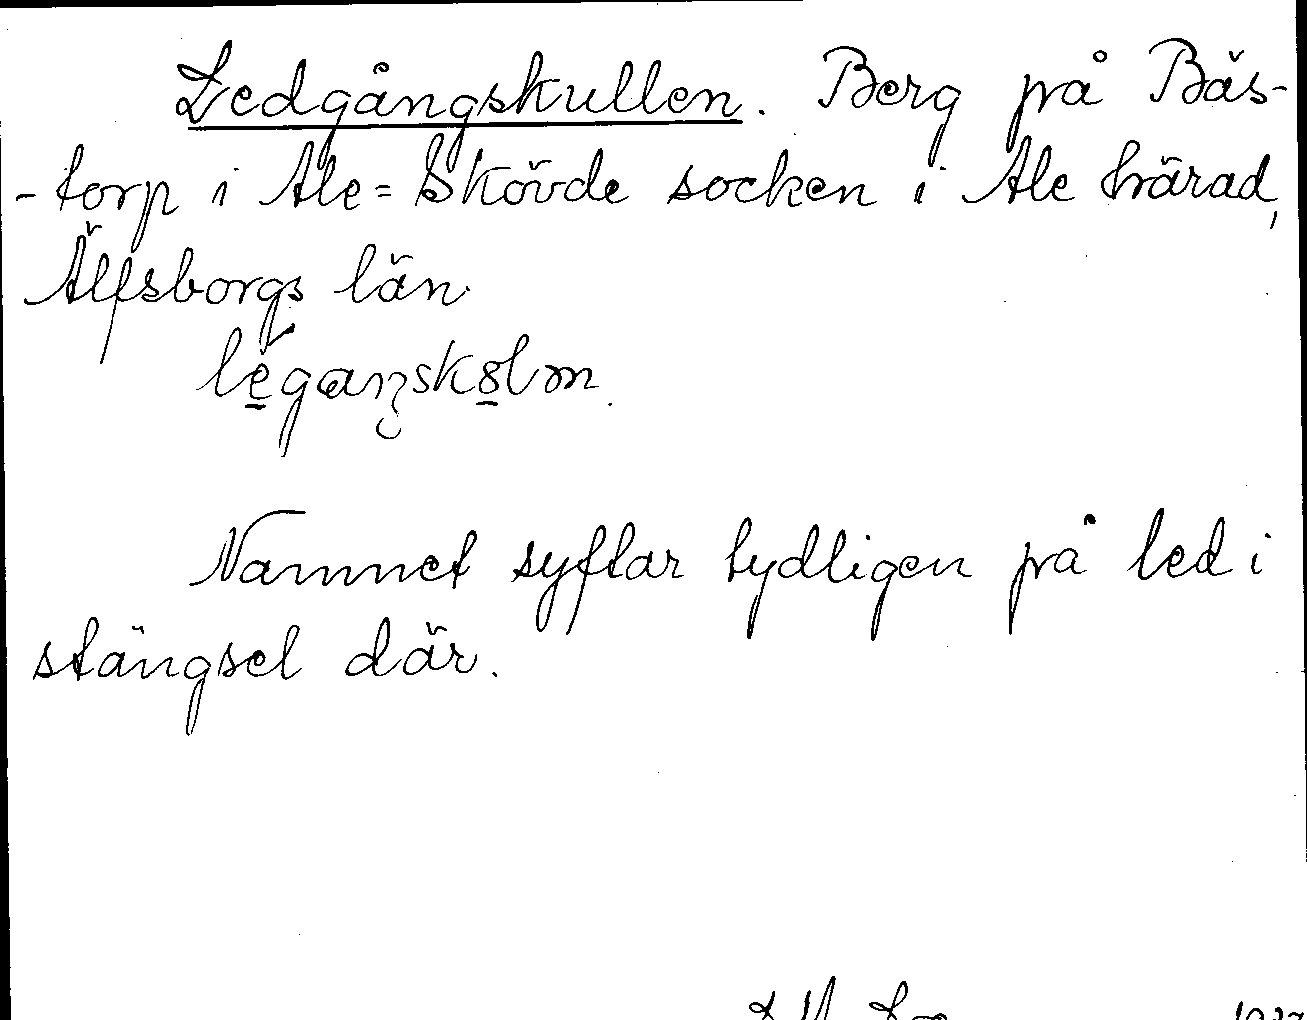 Ledgångskullen. Berg på Bäs-
-torp i Ale=Skövde socken i Ale härad,
Älfsborgs län
Namnet syftar tydligen på led i
stängsel där.